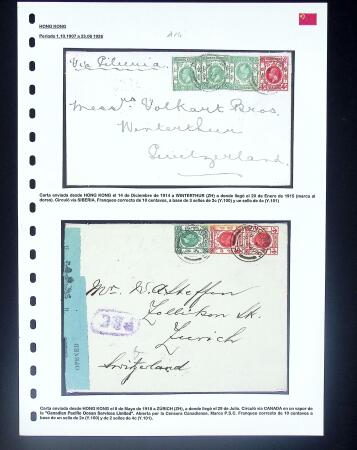 HONG KONG
Periodo 1.10.1907 a 23.06.1926
Via Siberia.
Messrs Volkart Bros.
Winterthur
Switzerland.
Carta enviada desde HONG KONG el 14 de Diciembre de 1914 a WINTERTHUR (ZH) a donde llegó el 20 de Enero de 1915 (marca al
dorso). Circuló vía SIBERIA. Franqueo correcto de 10 centavos, a base de 3 sellos de 2c (Y.100) y un sello de 4c (Y.101)
Mr. W. A. Steffen
Zollikon St.
Zurich
Switzerland
P.S.C.
OPENED
Carta enviada desde HONG KONG el 8 de Mayo de 1918 a ZÜRICH (ZH), a donde llegó el 29 de Julio. Circuló vía CANADA en un vapor de
la "Canadian Pacific Ocean Services Limited". Abierta por la Censura Canadiense. Marca P.S.C. Franqueo correcto de 10 centavos a
base de un sello de 2c (Y.100) y de 2 sellos de 4c (Y.101).